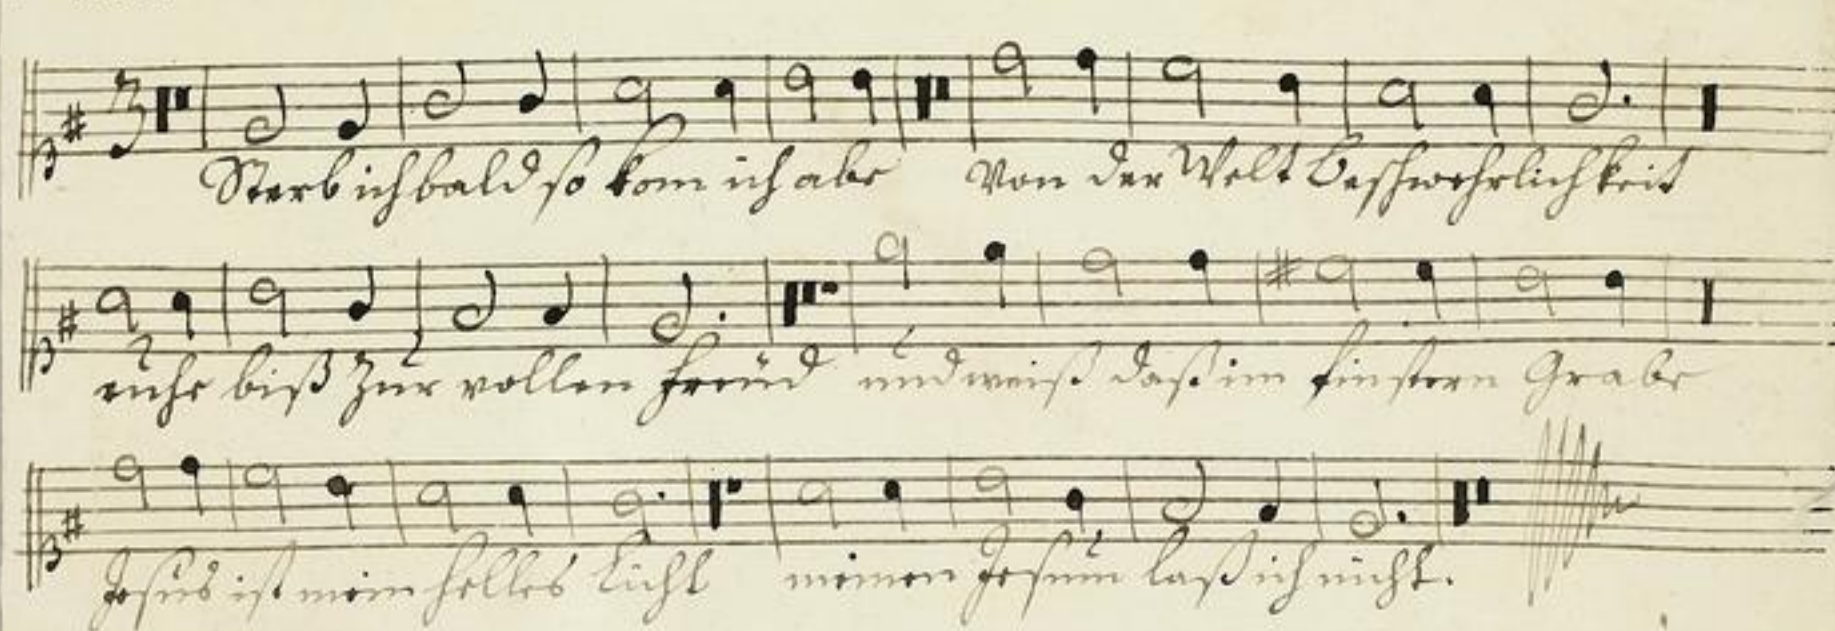 Sterb ich bald so kom ich abe Von der Welt beschwehrlichkeit
ruhe biß Zur vollen freüd und weiß daß im finstern Grabe
Jesus ist mein helles Licht meinen Jesum laß ich nicht.